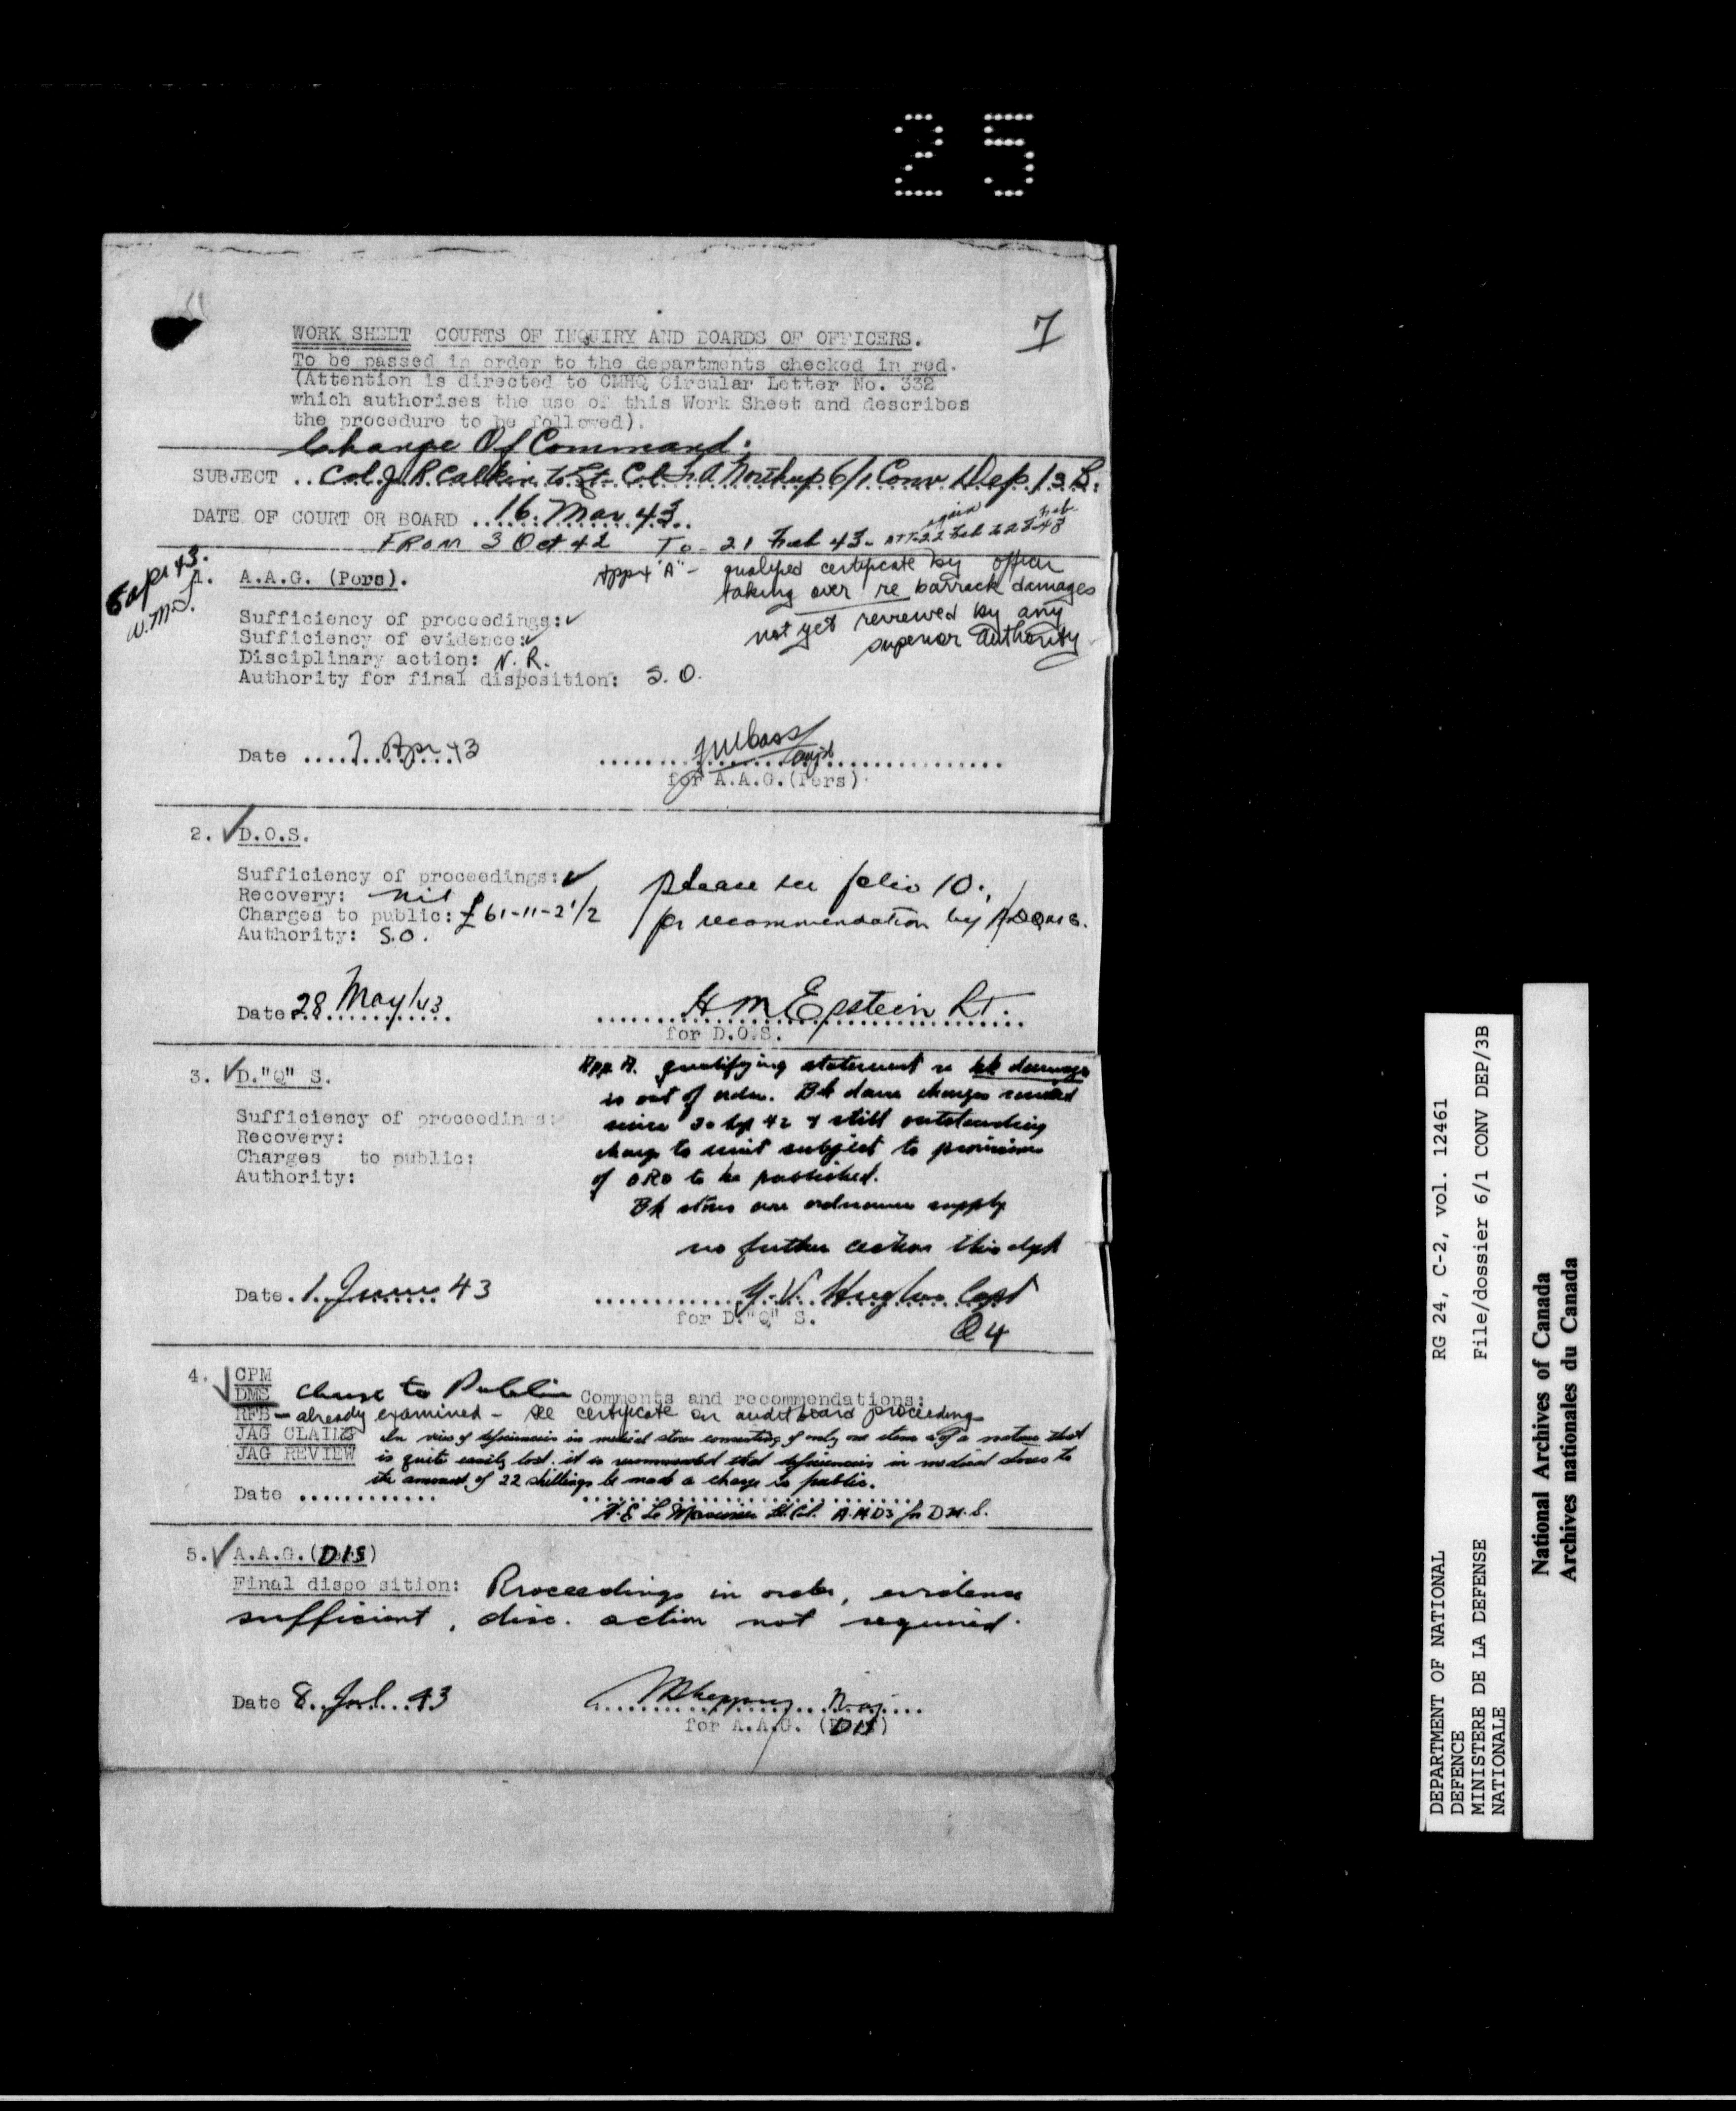 25
7
WORK SHEET COURTS OF INQUIRY AND BOARDS OF OFFICERS.
To be passed in order to the departments checked in red.
(Attention is directed to CMHQ Circular Letter No. 332
which authorises the use of this Work Sheet and describes
the procedure to be followed).
Change Of Command:
SUBJECT .. Col. J. R. Calkin to Lt- Col F. A Northup 6/1 Conv Dep /3 B.
DATE OF COURT OR BOARD ...16. Mar 43..
From 3 Oct 42 To - 21 Feb 43 -
6 apr 43.
W.M.J.
1. A.A.G. (Pers).
App x "A" - qualified certificate by officer
taking over re barrack damages
not yet reviewed by any
superior authority
Sufficiency of proceedings: ✓
Sufficiency of evidence: ✓
Disciplinary action: N. R.
Authority for final disposition: S. O.
Date ....7 Apr 43
for A.A.G.(Pers)
2. ✓ D.O.S.
Sufficiency of proceedings: ✓
Recovery: nil
Charges to public: £ 61-11-2 1/2
Authority: S.O.
please see folio 10.,
for recommendation by
Date 28 May/43
H M Epstein Lt.
for D.O.S.
3. ✓ D."Q" S.
App A. qualifying statement re bk damages
is out of order. Bk dam charges
since 30 Sep 42 & still outstanding
charge to unit subject to provisions
of ORO to be published.
Bk stores are ordnance supply
no further action this dept
Sufficiency of proceedings:
Recovery:
Charges to public:
Authority:
Date.1. June 43
G.V. Hughes Capt
for D."Q" S.
Q 4
4. ✓ CPM
DMS Charge to Public Comments and recommendations:
RFB - already examined - see certificate on audit board proceedings
JAG CLAIMS In view of deficiencies in medical stores consisting of only one item & of a nature that
JAG REVIEW is quite easily lost. it is recommended that deficiencies in medical stores to
the amount of 22 shillings be made a charge to public.
Date ............
Lt. Col. A.M.D3 for D.M.S.
5. ✓ A.A.G.(DIS)
Final disposition: Proceedings in order, evidence
sufficient, disc. action not required.
Date 8. Jul. 43
Maj
for A.A.G. (DIS)
DEPARTMENT OF NATIONAL DEFENCE
MINISTERE DE LA DEFENSE NATIONALE
RG 24, C-2, vol. 12461
File/dossier 6/1 CONV DEP/3B
National Archives of Canada
Archives nationales du Canada